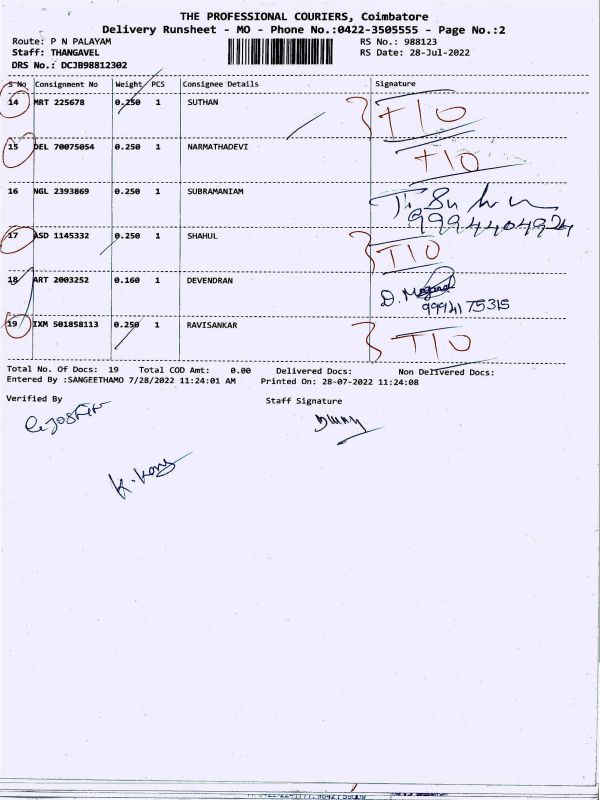 THE PROFESSIONAL COURIERS, Coimbatore
Delivery Runsheet - MO - Phone No.:0422-3505555 - Page No.:2
Route: P N PALAYAM RS No.: 988123
Staff: THANGAVEL RS Date: 28-Jul-2022
DRS No.: DCJB98812302
S No Consignment No Weight PCS Consignee Details Signature
14 MRT 225678 0.250 1 SUTHAN T10
15 DEL 70075054 0.250 1 NARMATHADEVI T10
16 NGL 2393869 0.250 1 SUBRAMANIAM
9994404924
17 ASD 1145332 0.250 1 SHAHUL T10
18 ART 2003252 0.160 1 DEVENDRAN D.
9994175315
19 IXM 501858113 0.250 1 RAVISANKAR T10
Total No. Of Docs: 19 Total COD Amt: 0.00 Delivered Docs: Non Delivered Docs:
Entered By :SANGEETHAMO 7/28/2022 11:24:01 AM Printed On: 28-07-2022 11:24:08
Verified By Staff Signature